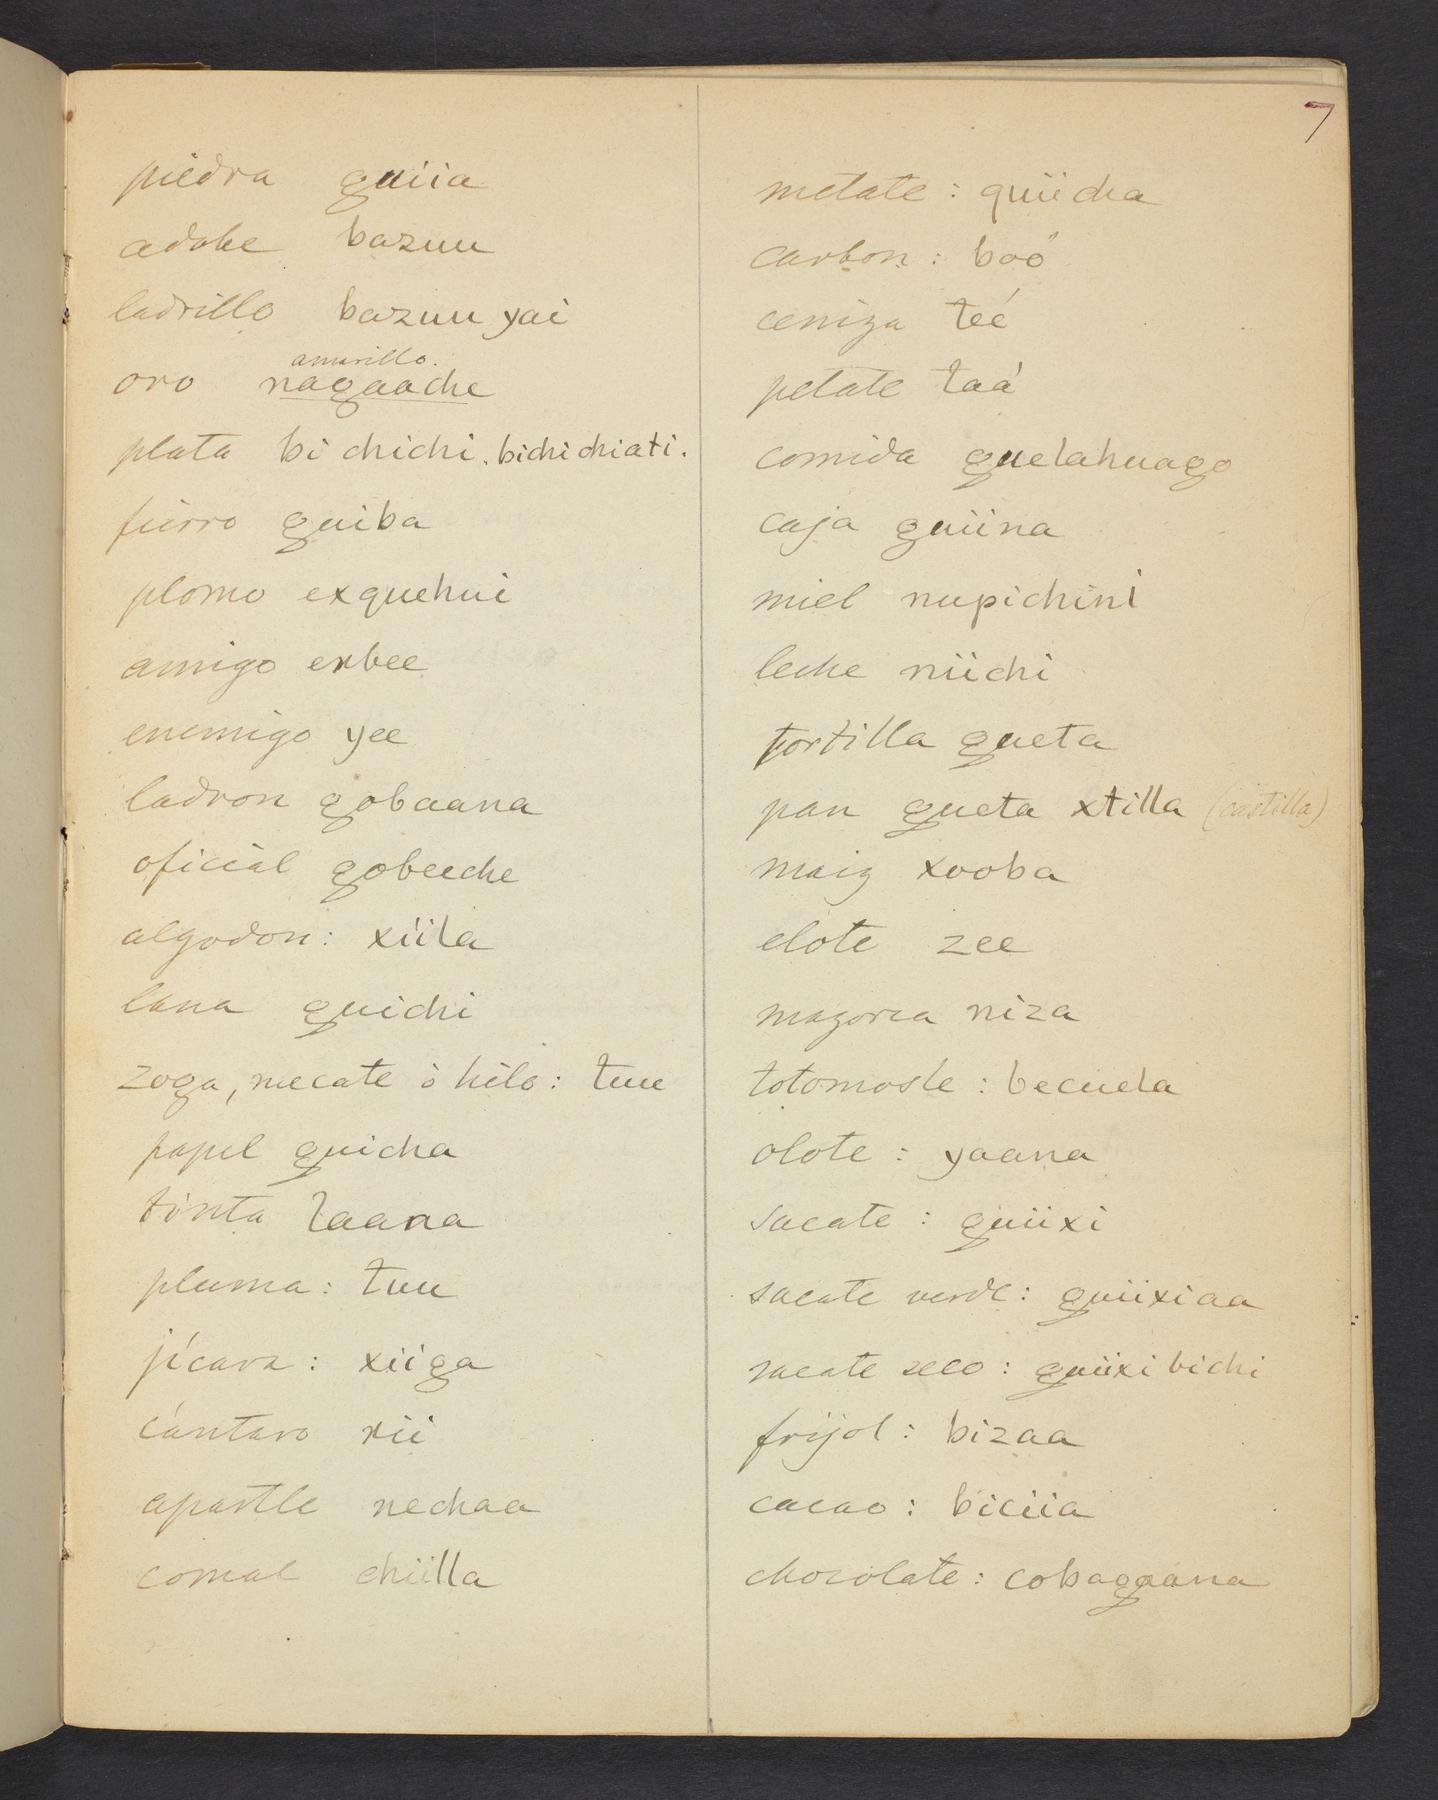 7
piedra guiia
adobe bazuu
ladrillo bazuu yai
amarillo.
oro nagaache
plata bi chichi. bichichiati.
fierro guiba
plomo exquehui
amigo exbee
enemigo yee
ladron gobaana
oficial gobeeche
algodon: xiila
lana guichi
zoga, mecate ò hilo: tuu
papel guicha
tinta laana
pluma: tuu
jícara: xiiga
cántaro xii
apastle nechaa
comal chiilla
metate: guiicha
carbon: boó
ceniza teé
petate taá
comida guelahuago
caja guiina
miel nupichini
leche niichi
tortilla gueta
pan gueta xtilla (castilla)
maiz xooba
elote zee
mazorca niza
totomosle: becuela
olote: yaana
sacate: guiixi
sacate verde: guiixiaa
sacate seco: guiixi bichi
frijol: bizaa
cacao: biciia
chocolate: cobagaana